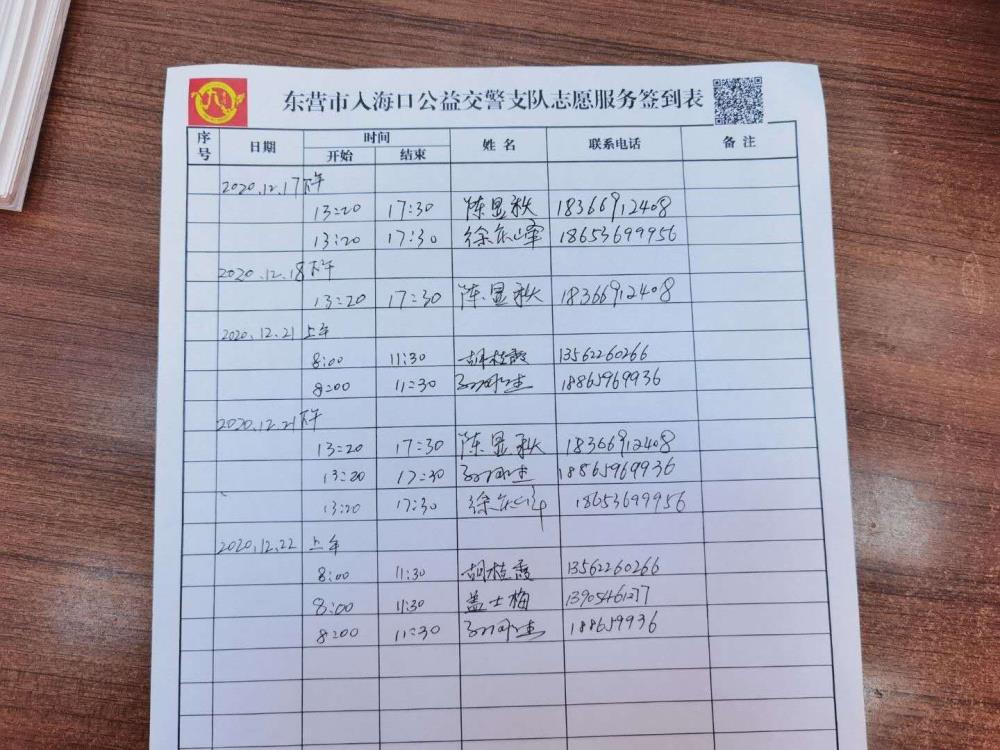 东营市入海口公益交警支队志愿服务签到表
序号 日期 时间 姓名 联系电话 备注
开始 结束
2020.12.17下午
13:20 17:30 陈显秋 18366912408
13:20 17:30 徐东峰 18653699956
2020.12.18下午
13:20 17:30 陈显秋 18366912408
2020.12.21上午
8:00 11:30 胡桂霞 13562260266
8:00 11:30 18865969936
2020.12.21下午
13:20 17:30 陈显秋 18366912408
13:20 17:30 18865969936
13:20 17:30 徐东峰 18653699956
2020.12.22上午
8:00 11:30 胡桂霞 13562260266
8:00 11:30 盖士梅 13905461277
8:00 11:30 188659936